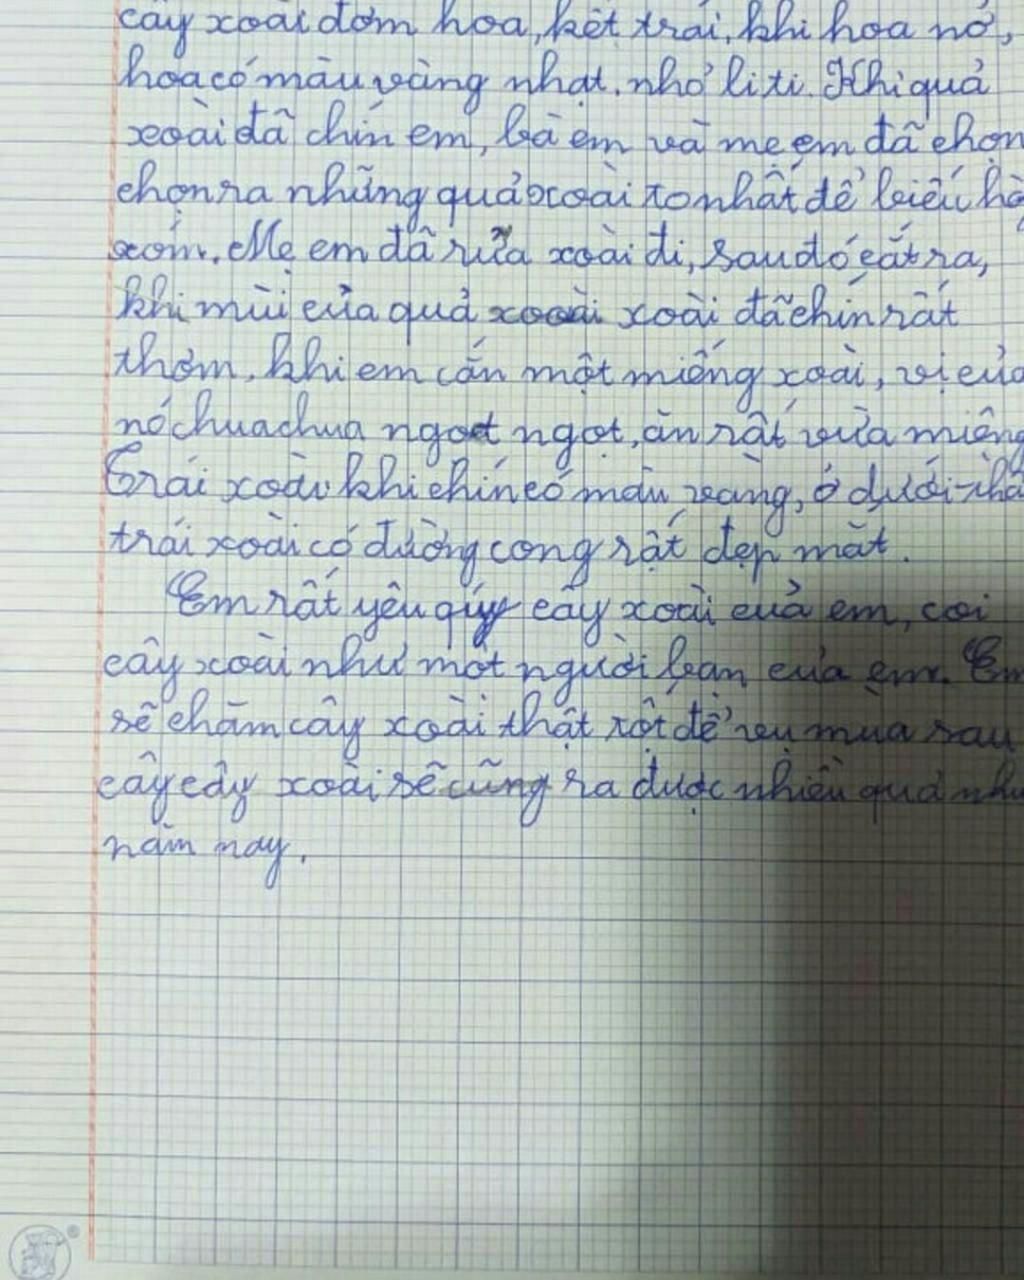 cây xoài đơm hoa, kết trái, khi hoa nở,
hoa có màu vàng nhạt, nhỏ li ti. Khi quả
xoài đã chín em, bà em và mẹ em đã chọn
chọn ra những quả xoài to nhất để biếu hà
xóm. Mẹ em đã rửa xoài đi, sau đó cắt ra,
khi mùi của quả xoài xoài đã chín rất
thơm, khi em cắn một miếng xoài, vị của
nó chua chua ngọt ngọt, ăn rất vừa miệng
Trái xoài khi chín có màu vàng, ở dưới
trái xoài có đường cong rất đẹp mắt.
Em rất yêu qúy cây xoài của em, coi
cây xoài như một người bạn của em. Em
sẽ chăm cây xoài thật tốt để vụ mùa sau
cây cây xoài sẽ cũng ra được nhiều quả như
năm nay.